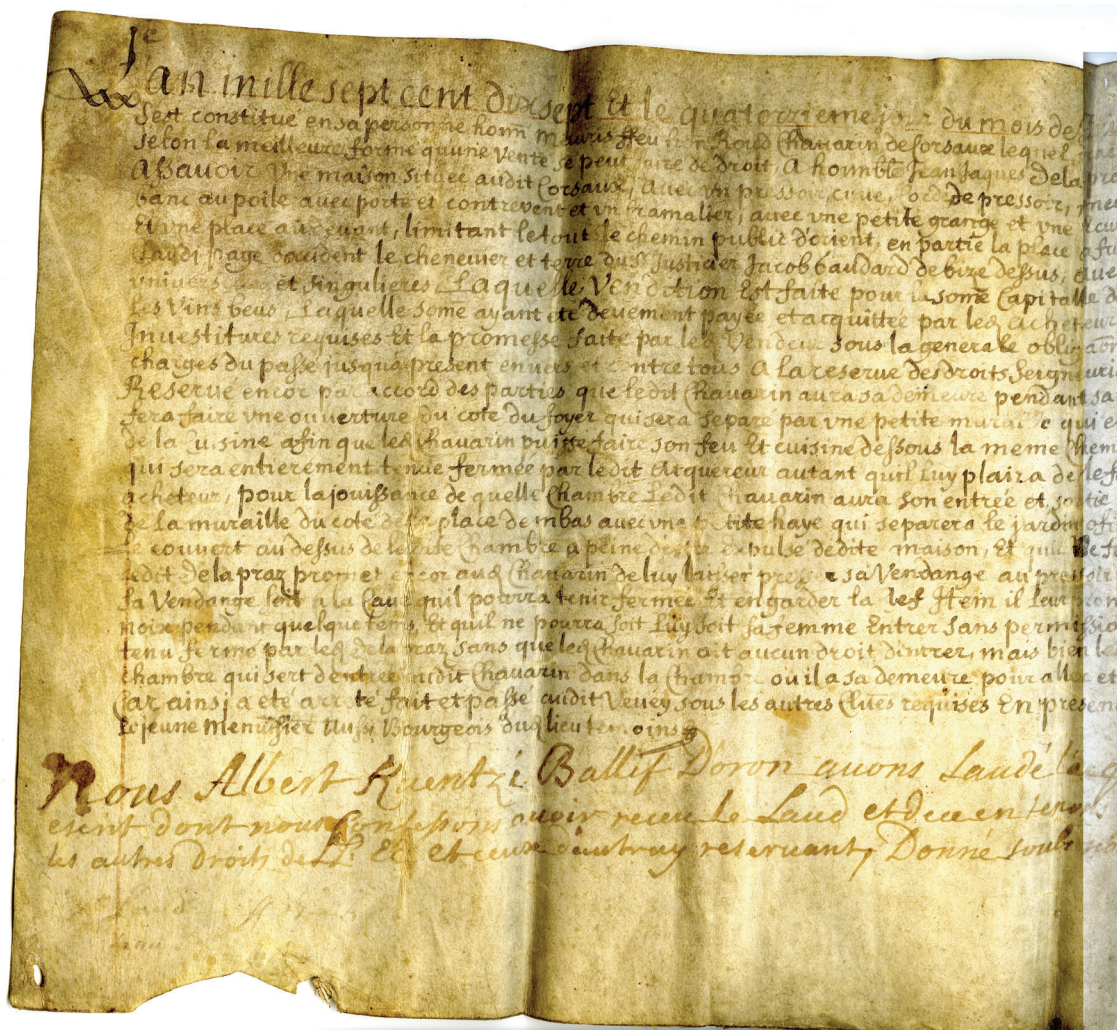 L'an mille sept cent dix sept Et le quatorzieme jour du mois de
S'est constitué en sa personne honn Meuris ffeu Chavarin de Corsaux lequel
Selon la meilleure forme quune Vente se peut faire de droit, A hoñnble Jean Jaques Dela pra
ASavoir Vne maison Situee audit Corsaux, avec vn pressoir, cuve, de pressoir,
banc au poile avec porte et contrevent et vn framalier, avec vne petite grange et vne Ecu
Et vne place au devant, limitant le tout le chemin public d'orient, en partie la place
occident le chenevier et terre du Sr Justicier Jacob baudard de bize dessus, ave
univers et singulieres Laquelle Vendition Est faite pour la some Capitalle d
Les Vins beus, Laquelle some ayant été deuement payée et acquittée par led Acheteur
Investitures requises Et la promesse faite par led Vendeur sous la generale oblig
charges du passé jusqu'a present envers et contre tous A la reserve des droits Seigneuri
Reservé encor par accord des parties que ledit Chavarin aura sa demeure pendant sa
fera faire vne ouverture du coté du foyer qui sera separé par vne petite murai e qui e
de la Cuisine afin que led Chavarin puisse faire son feu Et cuisine dessous la meme chem
qui sera entierement tenue fermée par ledit Acquereur autant quil Luy plaira de
acheteur, pour la jouissance de quelle Chambre Ledit Chavarin aura son entrée et sortie
de la muraille du coté de la place dembas avec vne petite haye qui separera le jardin
Le couvert au dessus de ledite Chambre a peine d'etre Expulse dedite maison, Et quil
Ledit Delapraz promet encor aud Chavarin de luy laisser presser sa Vendange au pressoir
sa Vendange soit a la Cave quil pourra tenir fermée Et en garder la clef Item il Leur prom
noix pendant quelque tems, Et quil ne pourra soit Luy soit sa femme Entrer Sans permissio
tenu fermé par led Delapraz sans que led Chavarin ait aucun droit d'intrer, mais bien le
chambre qui sert d'entrée audit Chavarin dans la Chambre ou il a sa demeure pour aller et
Car ainsi a été arrété fait et passé audit Vevey sous les autres Clues requises En presen
Le jeune Menuisier Aussy Bourgeois dud lieu temoins
Nous Albert Kuentzi Ballif Doron avons Laudé le
escrit dont nous Confessons avoir receu le Laud et de ce en
les autres Droits de LL. EE. et ceux d'autruy reservant, Donné soubs